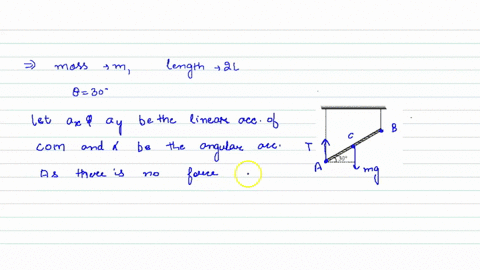 ⇒ mass → m, length → 2L
θ = 30°
Let ax & ay be the linear acc. of
com and α be the angular acc.
As there is no force
T
A
30°
C
B
mg